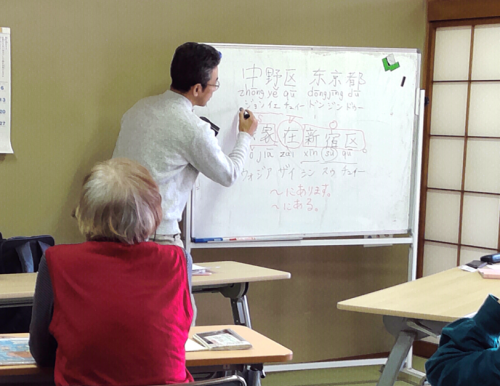 中野区 东京都
zhōng yě qū dōng jīng dū
ジョン イエ チュィー ドンジン ドゥー
家 在 新宿区。
jiā zài xīn sù qū
ウォジア ザイ シン スウ チュィー
～にあります。
～にある。